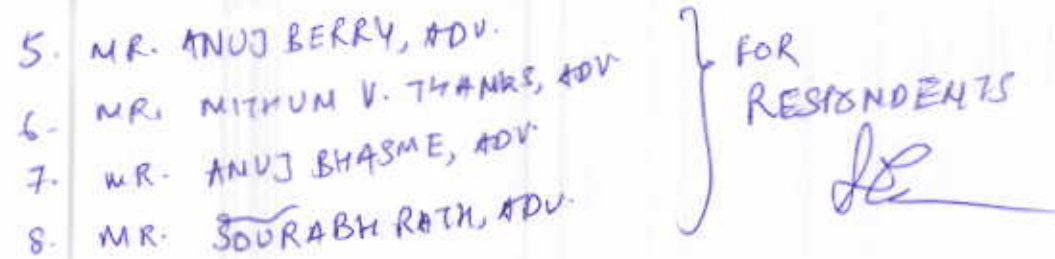 5. MR. ANUJ BERRY, ADV.
6. MR. MITHUM V. THANKS, ADV
7. MR. ANUJ BHASME, ADV.
8. MR. SOURABH RATH, ADV.
FOR
RESPONDENTS